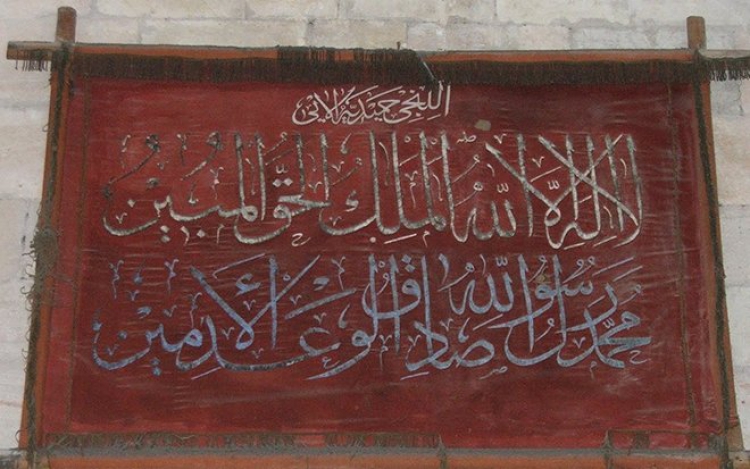 اللنجى حميديه الايى
لا اله الا الله الملك الحق المبين
محمد رسول الله صادق الوعد الأمين